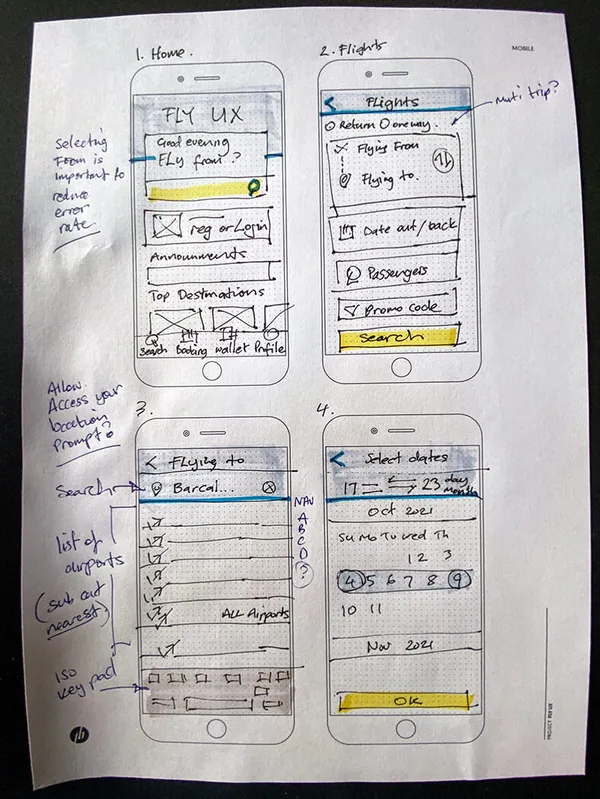 1. Home.
2. Flights
MOBILE
FLY UX
Good evening
FLy from?
Selecting
From is
important to
reduce
error
rate.
reg or Login
Announments
Top Destinations
Search Booking wallet Profile
< Flights
Muti trip?
Return O oneway.
Flying From
Flying to.
Date out/back
Passengers
Promo code
Search
Allow
Access your
location
prompt?
3.
< Flying to
Search
Barcal...
NAV
A
B
C
D
?
list of
airports
(sub cat
nearest)
ALL Airports
ISO
key pad
4.
< Select dates
17 23 day
month
Oct 2021
Su Mo Tu wed Th
1 2 3
4 5 6 7 8 9
10 11
Nov 2021
OK
hp